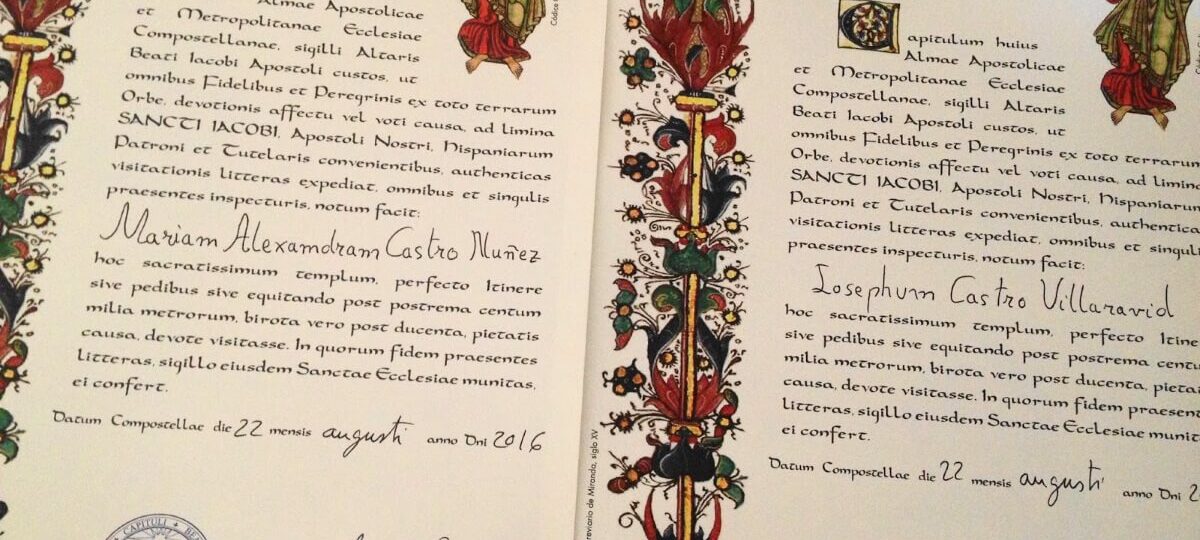 Almae Apostolicae
et Metropolitanae Ecclesiae
Compostellanae, sigilli Altaris
Beati Iacobi Apostoli custos, ut
omnibus Fidelibus et Peregrinis ex toto terrarum
Orbe, devotionis affectu vel voti causa, ad limina
SANCTI IACOBI, Apostoli Nostri, Hispaniarum
Patroni et Tutelaris convenientibus, authenticas
visitationis litteras expediat, omnibus et singulis
praesentes inspecturis, notum facit:
Mariam Alexamdram Castro Nuñez
hoc sacratissimum templum, perfecto Itinere
sive pedibus sive equitando post postrema centum
milia metrorum, birota vero post ducenta, pietatis
causa, devote visitasse. In quorum fidem praesentes
litteras, sigillo eiusdem Sanctae Ecclesiae munitas,
ei confert.
Datum Compostellae die 22 mensis augusti anno Dni 2016
CAPITULI
Códice
Capitulum huius
Almae Apostolicae
et Metropolitanae Ecclesiae
Compostellanae, sigilli Altaris
Beati Iacobi Apostoli custos, ut
omnibus Fidelibus et Peregrinis ex toto terrarum
Orbe, devotionis affectu vel voti causa, ad limina
SANCTI IACOBI, Apostoli Nostri, Hispaniarum
Patroni et Tutelaris convenientibus, authenticas
visitationis litteras expediat, omnibus et singuli
praesentes inspecturis, notum facit:
Iosephum Castro Villaravid
hoc sacratissimum templum, perfecto Itine
sive pedibus sive equitando post postrema centu
milia metrorum, birota vero post ducenta, pietat
causa, devote visitasse. In quorum fidem praesen
litteras, sigillo eiusdem Sanctae Ecclesiae munit
ei confert.
Datum Compostellae die 22 mensis augusti anno Dni 2
reviario de Miranda, siglo XV